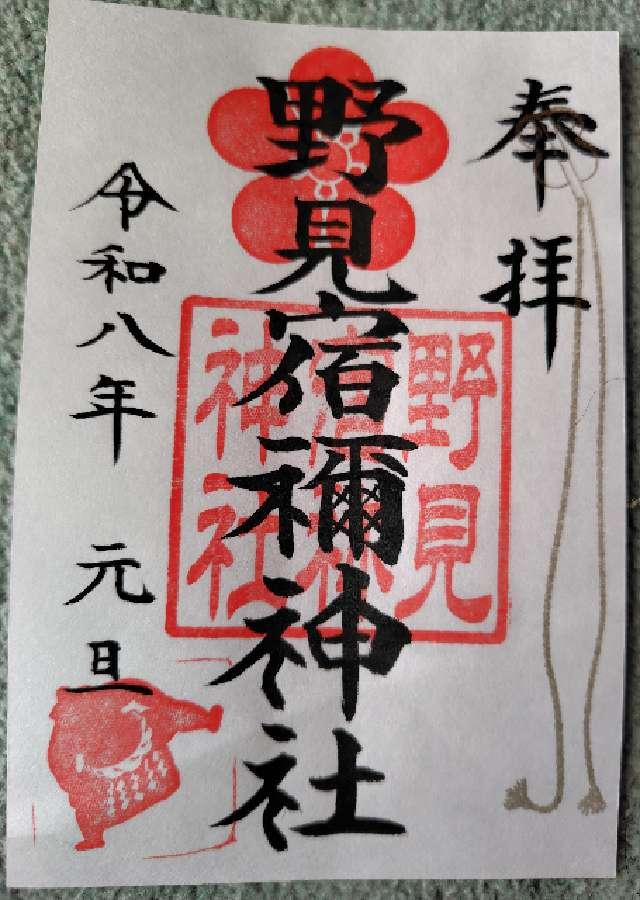 奉拝
野見宿禰神社
野見
宿禰
神社
令和八年 元旦